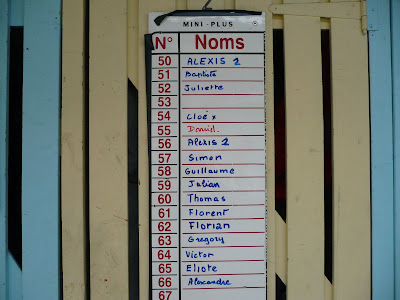 MINI-PLUS
N° Noms
50 ALEXIS 1
51 Baptiste
52 Juliette
53
54 Cloé x
55 David.
56 Alexis 2
57 Simon
58 Guillaume
59 Julian
60 Thomas
61 Florent
62 Florian
63 Gregory
64 Victor
65 Eliote
66 Alexandre
67